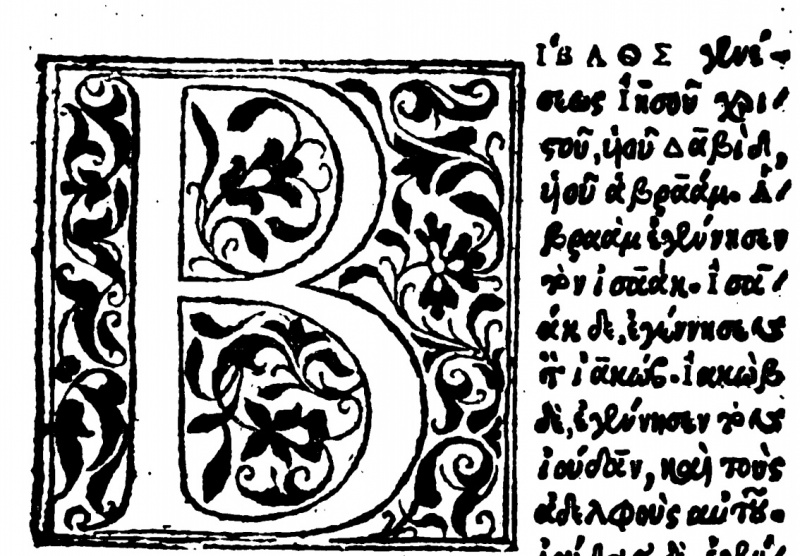 ΒΙΒΛΟΣ γενέ-
σεως Ἰησοῦ χρι/
στοῦ, ὑοῦ Δαβὶδ,
ὑοῦ ἀβραάμ. Ἀ/
βραὰμ ἐγέννησεν
τὸν ἰσαάκ. Ἰσα/
ὰκ δὲ, ἐγέννησεν
τὸν ἰακώβ. Ἰακὼβ
δὲ, ἐγέννησεν τὸν
ἰούδαν, καὶ τοὺς
ἀδελφοὺς αὐτοῦ.
ἰούδας δὲ ἐγέν/